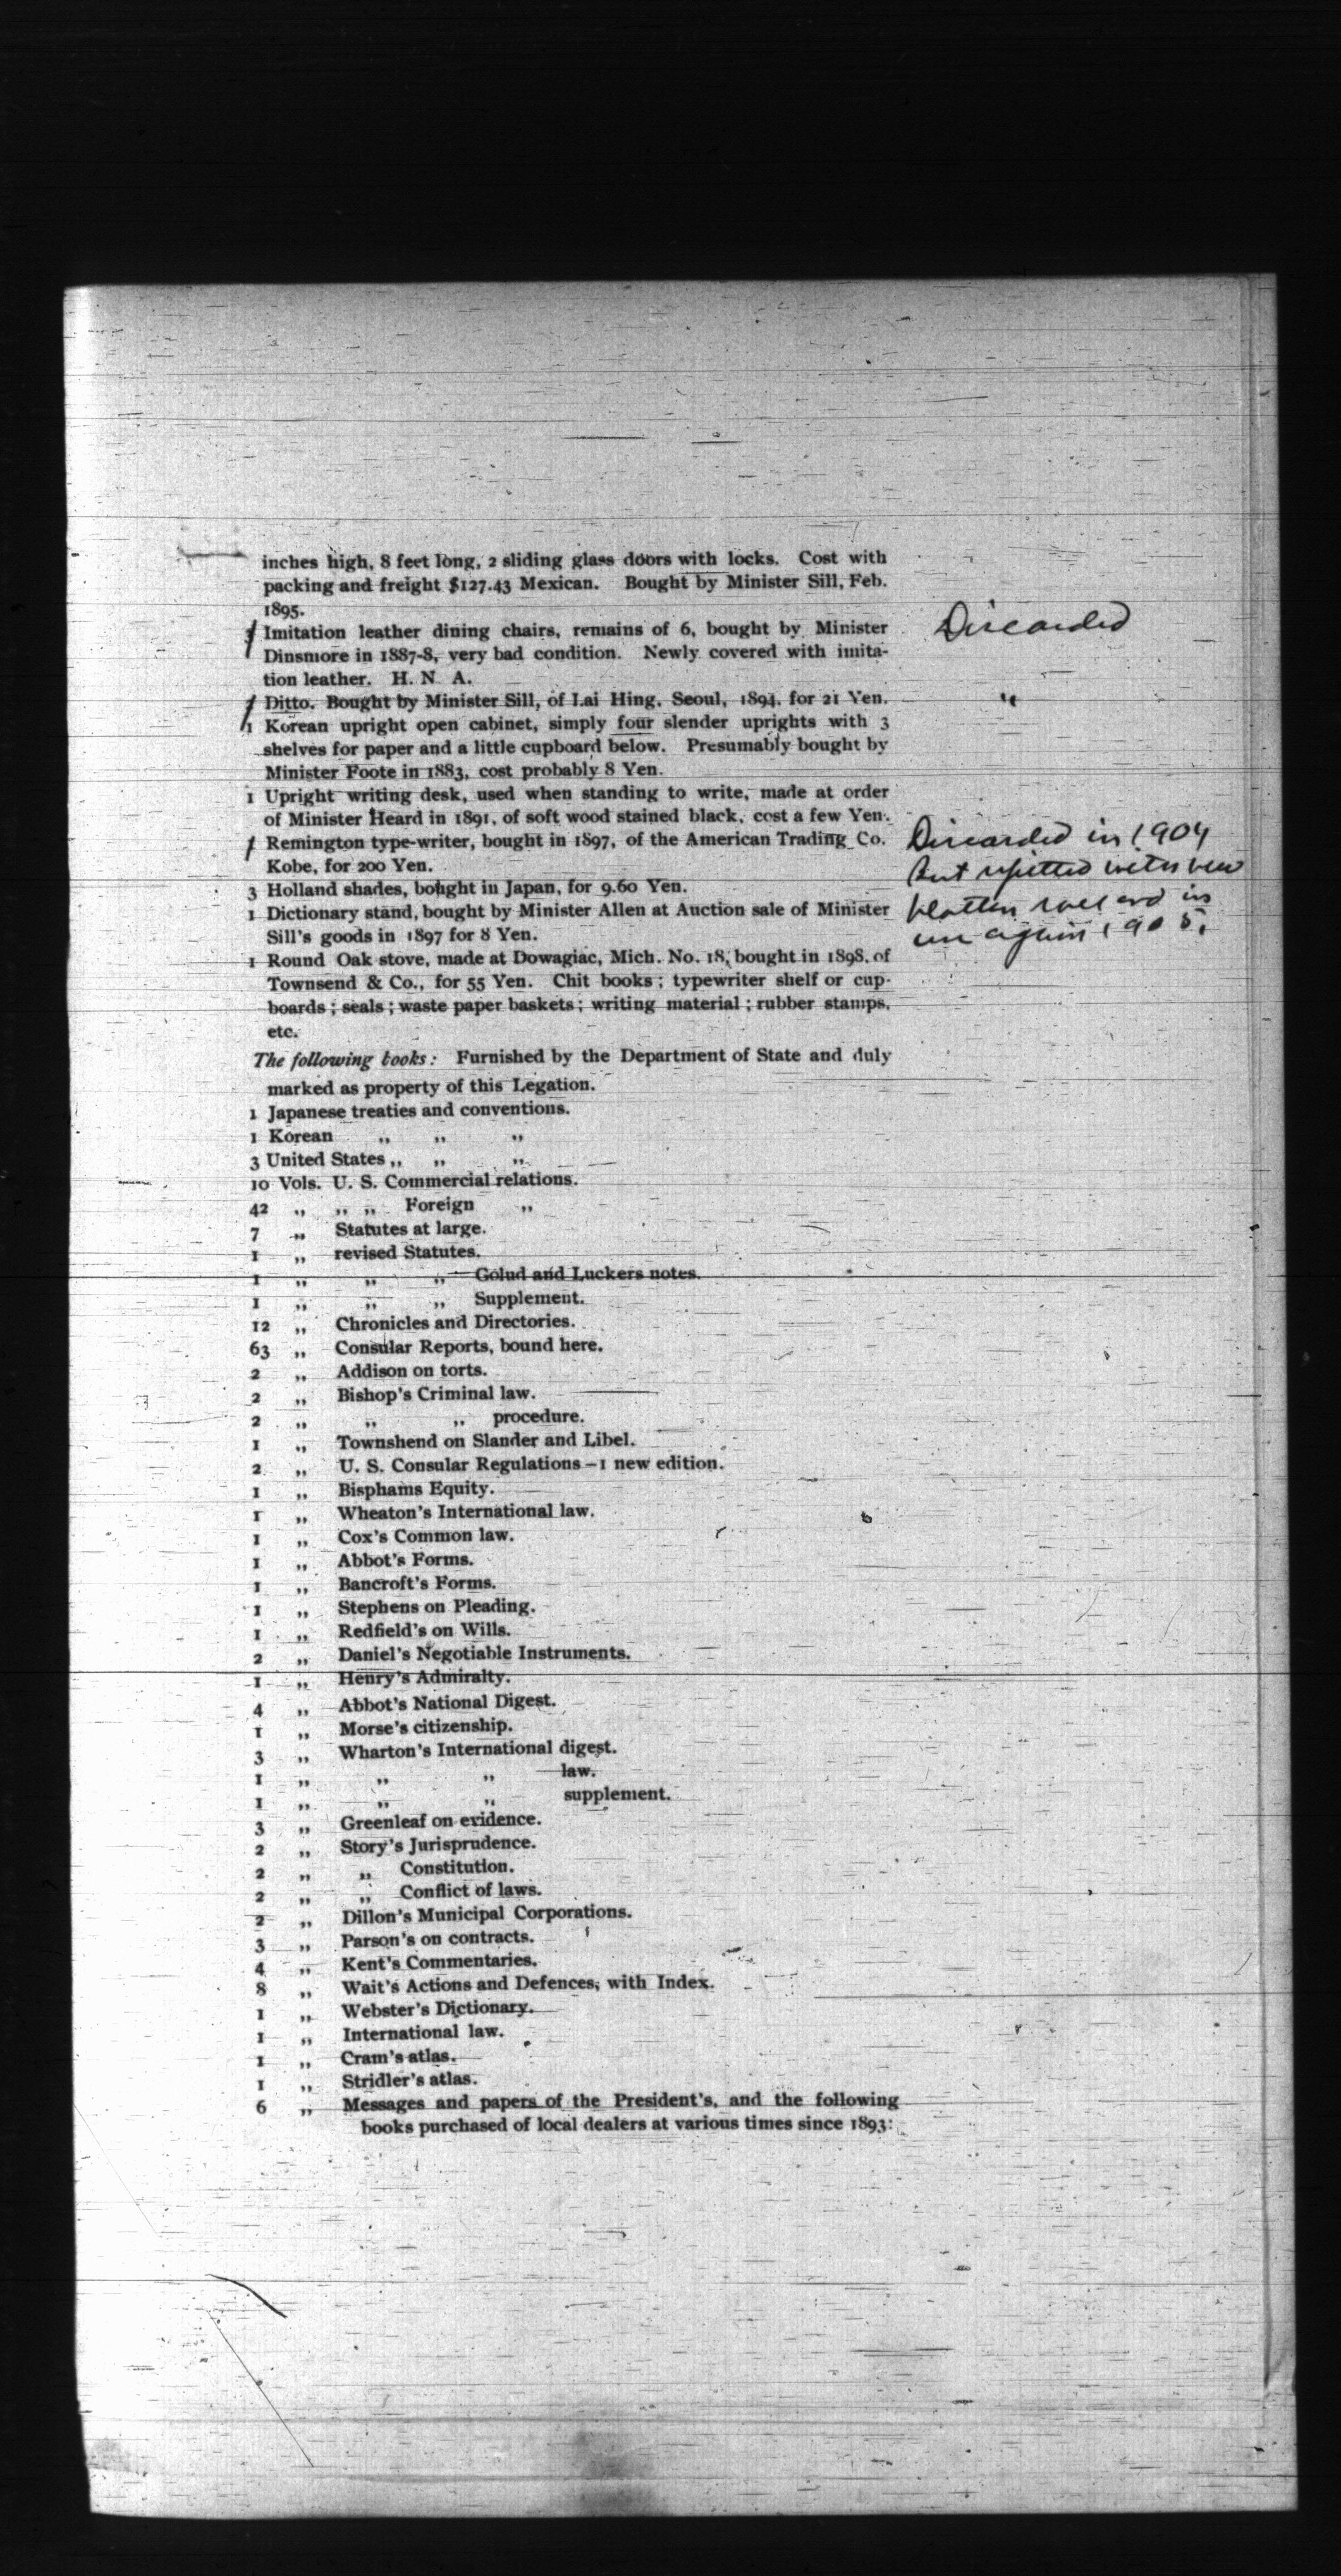 inches high, 8 feet long, 2 sliding glass doors with locks. Cost with
packing and freight $127.43 Mexican. Bought by Minister Sill, Feb.
1895.
Imitation leather dining chairs, remains of 6, bought by Minister
Discarded
Dinsmore in 1887-8, very bad condition. Newly covered with imita-
tion leather. H. N. A.
Ditto. Bought by Minister Sill, of Lai Hing. Seoul, 1894. for 21 Yen.
"
1 Korean upright open cabinet, simply four slender uprights with 3
shelves for paper and a little cupboard below. Presumably bought by
Minister Foote in 1883, cost probably 8 Yen.
1 Upright writing desk, used when standing to write, made at order
of Minister Heard in 1891, of soft wood stained black, cost a few Yen.
1 Remington type-writer, bought in 1897, of the American Trading Co.
Kobe, for 200 Yen.
Discarded in 1904
but refitted with new
platten roll and in
use again 1905.
3 Holland shades, bought in Japan, for 9.60 Yen.
1 Dictionary stand, bought by Minister Allen at Auction sale of Minister
Sill's goods in 1897 for 8 Yen.
1 Round Oak stove, made at Dowagiac, Mich. No. 18, bought in 1898, of
Townsend & Co., for 55 Yen. Chit books; typewriter shelf or cup-
boards; seals; waste paper baskets; writing material; rubber stamps,
etc.
The following books: Furnished by the Department of State and duly
marked as property of this Legation.
1 Japanese treaties and conventions.
1 Korean ,, ,, ,,
3 United States ,, ,, ,,
10 Vols. U. S. Commercial relations.
42 ,, ,, ,, Foreign ,,
7 ,, Statutes at large.
1 ,, revised Statutes.
1 ,, ,, ,, Golud and Luckers notes.
1 ,, ,, ,, Supplement.
12 ,, Chronicles and Directories.
63 ,, Consular Reports, bound here.
2 ,, Addison on torts.
2 ,, Bishop's Criminal law.
2 ,, ,, ,, procedure.
1 ,, Townshend on Slander and Libel.
2 ,, U. S. Consular Regulations – 1 new edition.
1 ,, Bisphams Equity.
1 ,, Wheaton's International law.
1 ,, Cox's Common law.
1 ,, Abbot's Forms.
1 ,, Bancroft's Forms.
1 ,, Stephens on Pleading.
1 ,, Redfield's on Wills.
2 ,, Daniel's Negotiable Instruments.
1 ,, Henry's Admiralty.
4 ,, Abbot's National Digest.
1 ,, Morse's citizenship.
3 ,, Wharton's International digest.
1 ,, ,, ,, law.
1 ,, ,, ,, supplement.
3 ,, Greenleaf on evidence.
2 ,, Story's Jurisprudence.
2 ,, ,, Constitution.
2 ,, ,, Conflict of laws.
2 ,, Dillon's Municipal Corporations.
3 ,, Parson's on contracts.
4 ,, Kent's Commentaries.
8 ,, Wait's Actions and Defences, with Index.
1 ,, Webster's Dictionary.
1 ,, International law.
1 ,, Cram's atlas.
1 ,, Stridler's atlas.
6 ,, Messages and papers of the President's, and the following
books purchased of local dealers at various times since 1893: